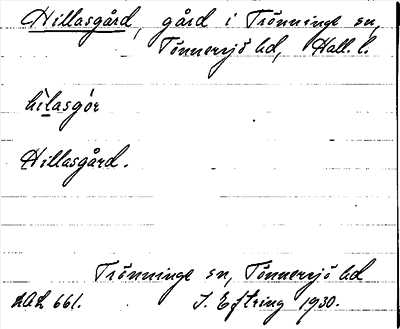 Hillasgård, gård i Trönninge sn,
Tönnersjö hd, Hall. l.
hìlasgór
Hillasgård.
Trönninge sn, Tönnersjö hd
LAL 661. J. Eftring 1930.